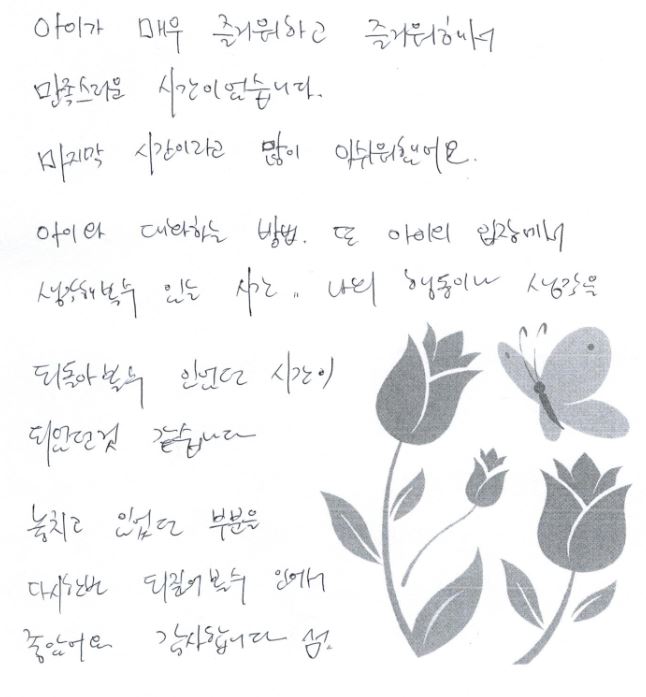 아이가 매우 즐거워하고 즐거워해서
만족스러운 시간이였습니다.
마지막 시간이라고 많이 아쉬워했어요.
아이와 대화하는 방법. 또 아이의 입장에서
생각해볼수 있는 시간.. 나의 행동이나 생각을
되돌아볼수 있었던 시간이
되었던것 같습니다
놓치고 있었던 부분을
다시한번 되짚어볼수 있어서
좋았어요 감사합니다